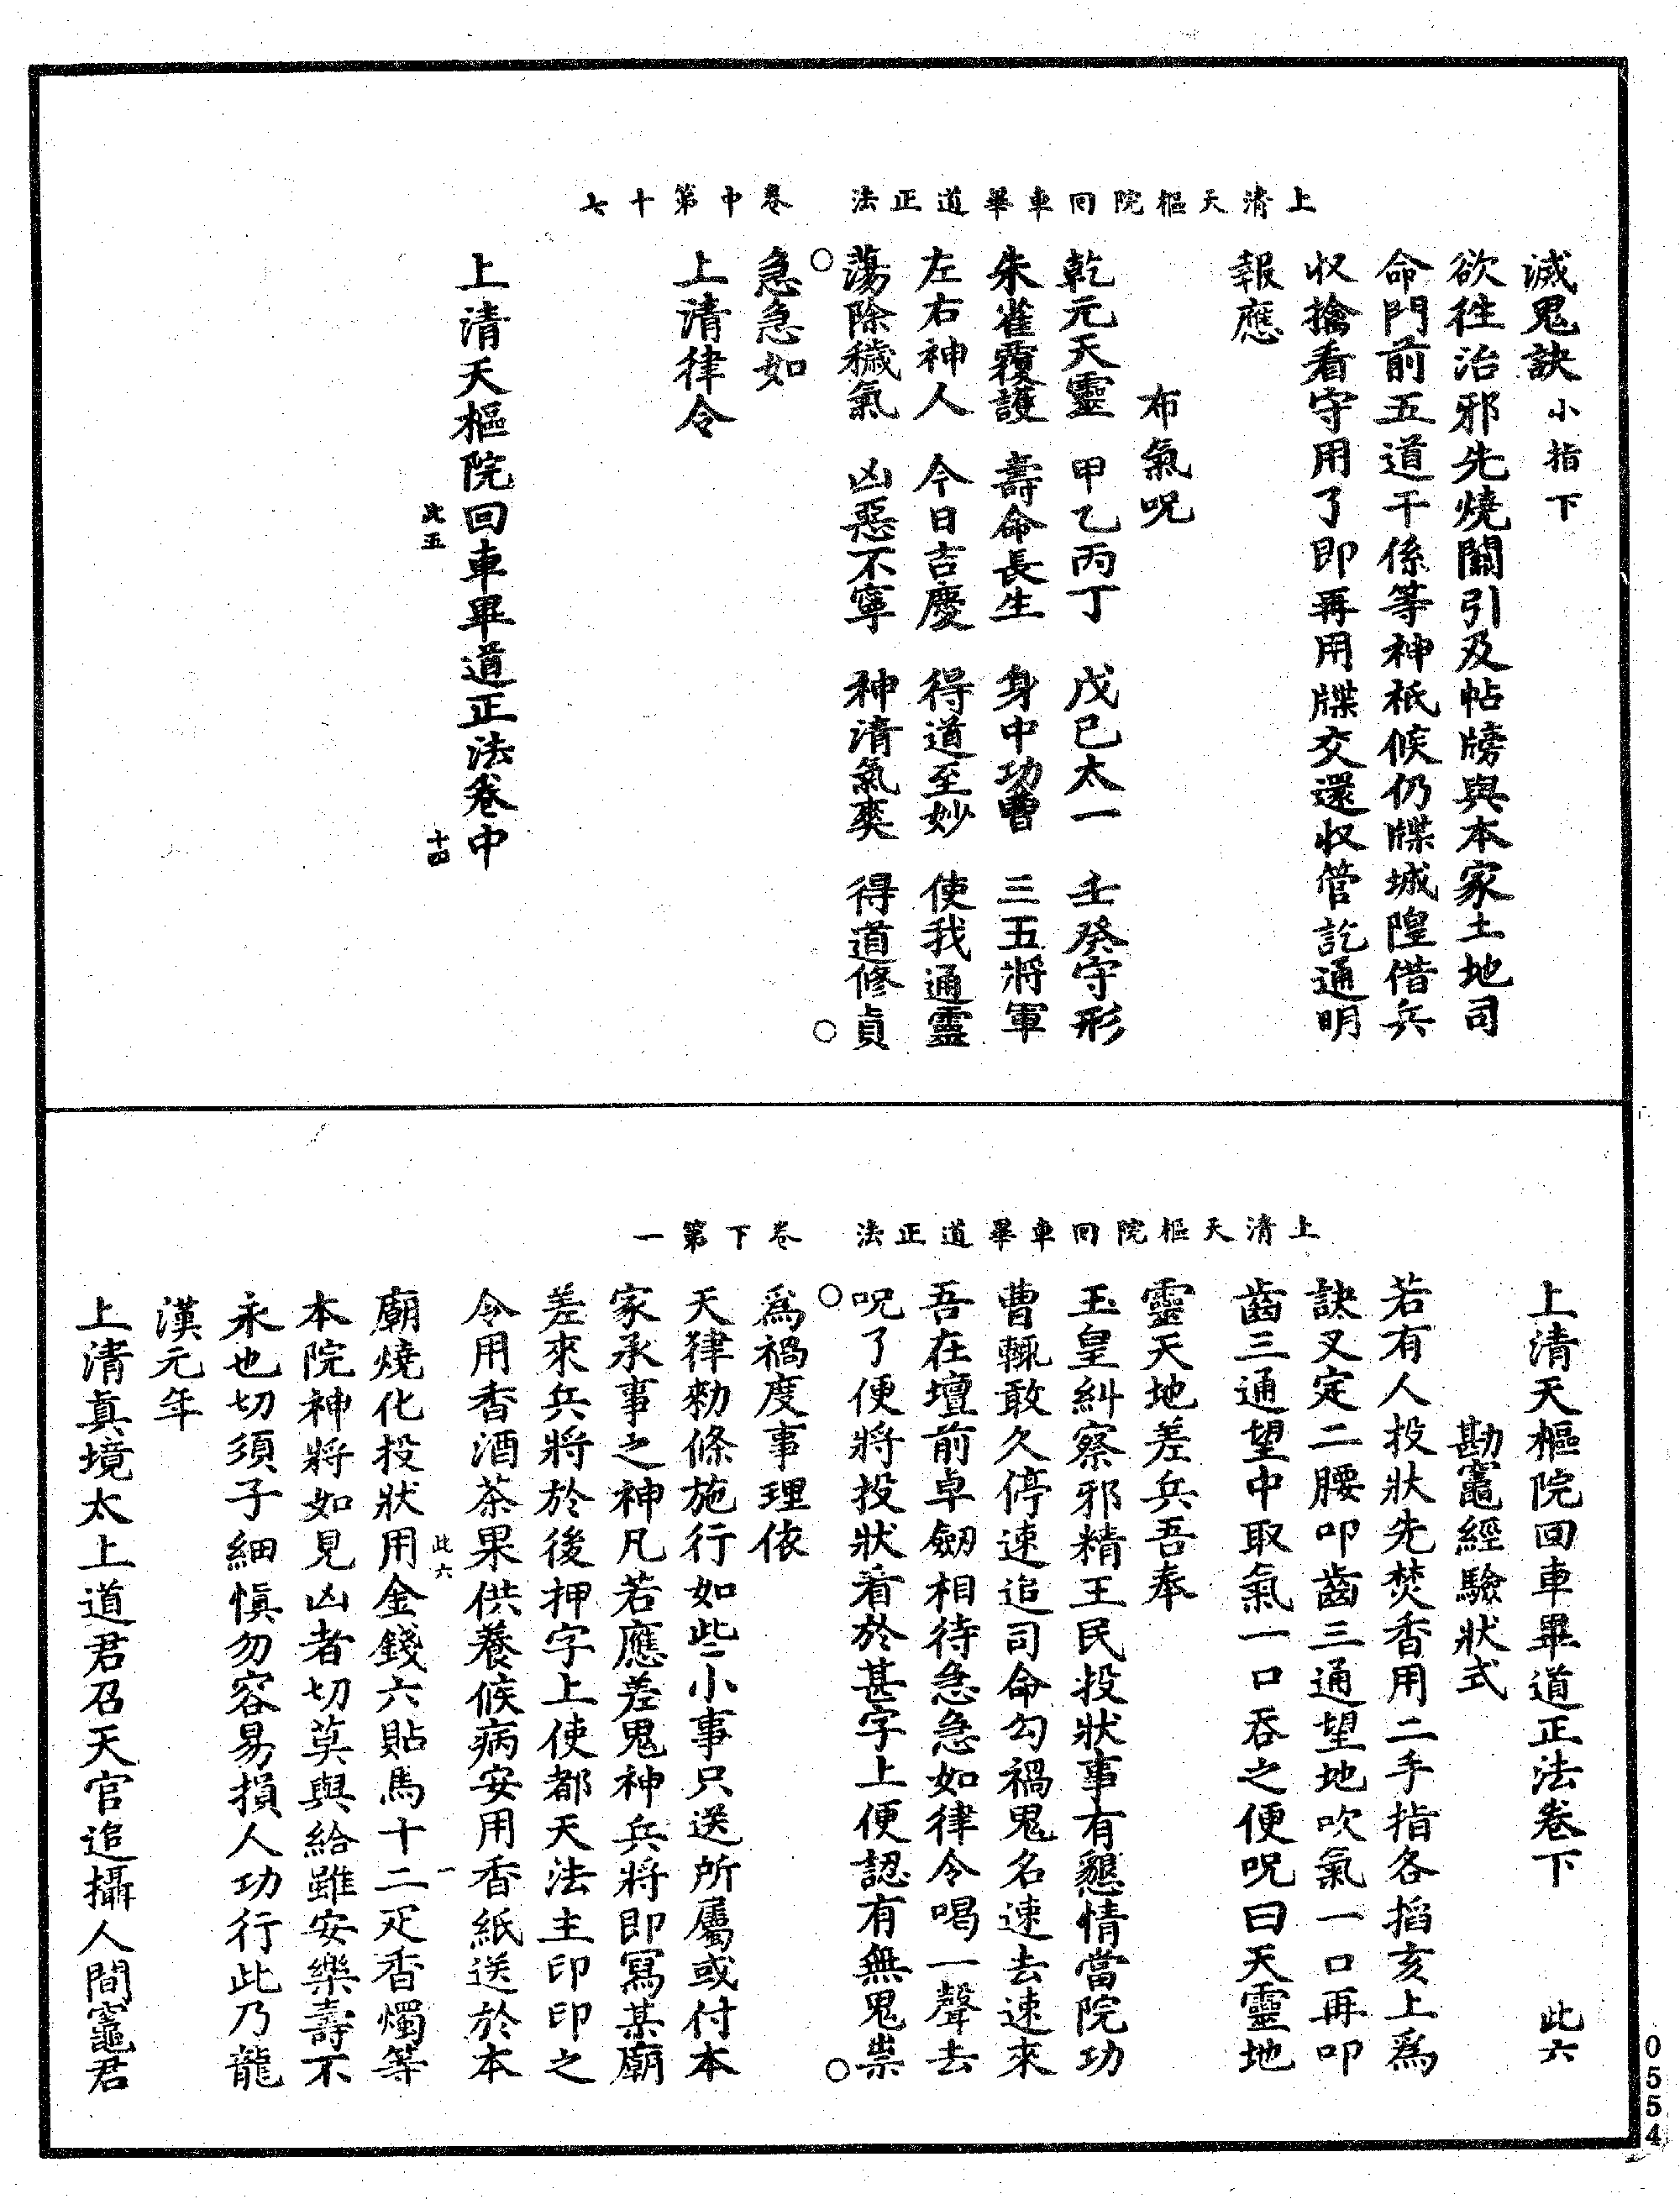 上清天樞院回車畢道正法　卷中第十七
滅鬼訣小指下
欲徃治邪先燒關引及帖牓與本家土地司
命門前五道干係等神祇候仍牒城隍借兵
収擒看守用了即再用牒交還収管訖通明
報應
布氣呪
乾元天靈　甲乙丙丁　戊己太一　壬癸守形
朱雀覆護　壽命長生　身中功曹　三五將軍
左右神人　今日吉慶　得道至妙　使我通靈
蕩除穢氣　凶惡不寧　神清氣爽　得道修貞
○　○
急急如
上清律令
上清天樞院回車畢道正法卷中
此五　十四
上清天樞院回車畢道正法　卷下第一
上清天樞院回車畢道正法卷下　此六
勘竈經驗狀式
若有人投狀先焚香用二手指各掐亥上爲
訣叉定二腰叩齒三通望地吹氣一口再叩
齒三通望中取氣一口吞之便呪曰天靈地
靈天地差兵吾奉
玉皇糾察邪精王民投狀事有懇情當院功
曹輒敢久停速追司命勾禍鬼名速去速來
吾在壇前卓劒相待急急如律令喝一聲去
呪了便將投狀看於甚字上便認有無鬼祟
○　○
爲禍度事理依
天律勑條施行如些小事只送所屬或付本
家承事之神凡若應差鬼神兵將即寫某廟
差來兵將於後押字上使都天法主印印之
令用香酒茶果供養候病安用香紙送於本
此六　一
廟燒化投狀用金錢六貼馬十二疋香燭等
本院神將如見凶者切莫與給雖安樂壽不
永也切須子細愼勿容易損人功行此乃龍
漢元年
上清真境太上道君召天官追攝人間竈君
0554